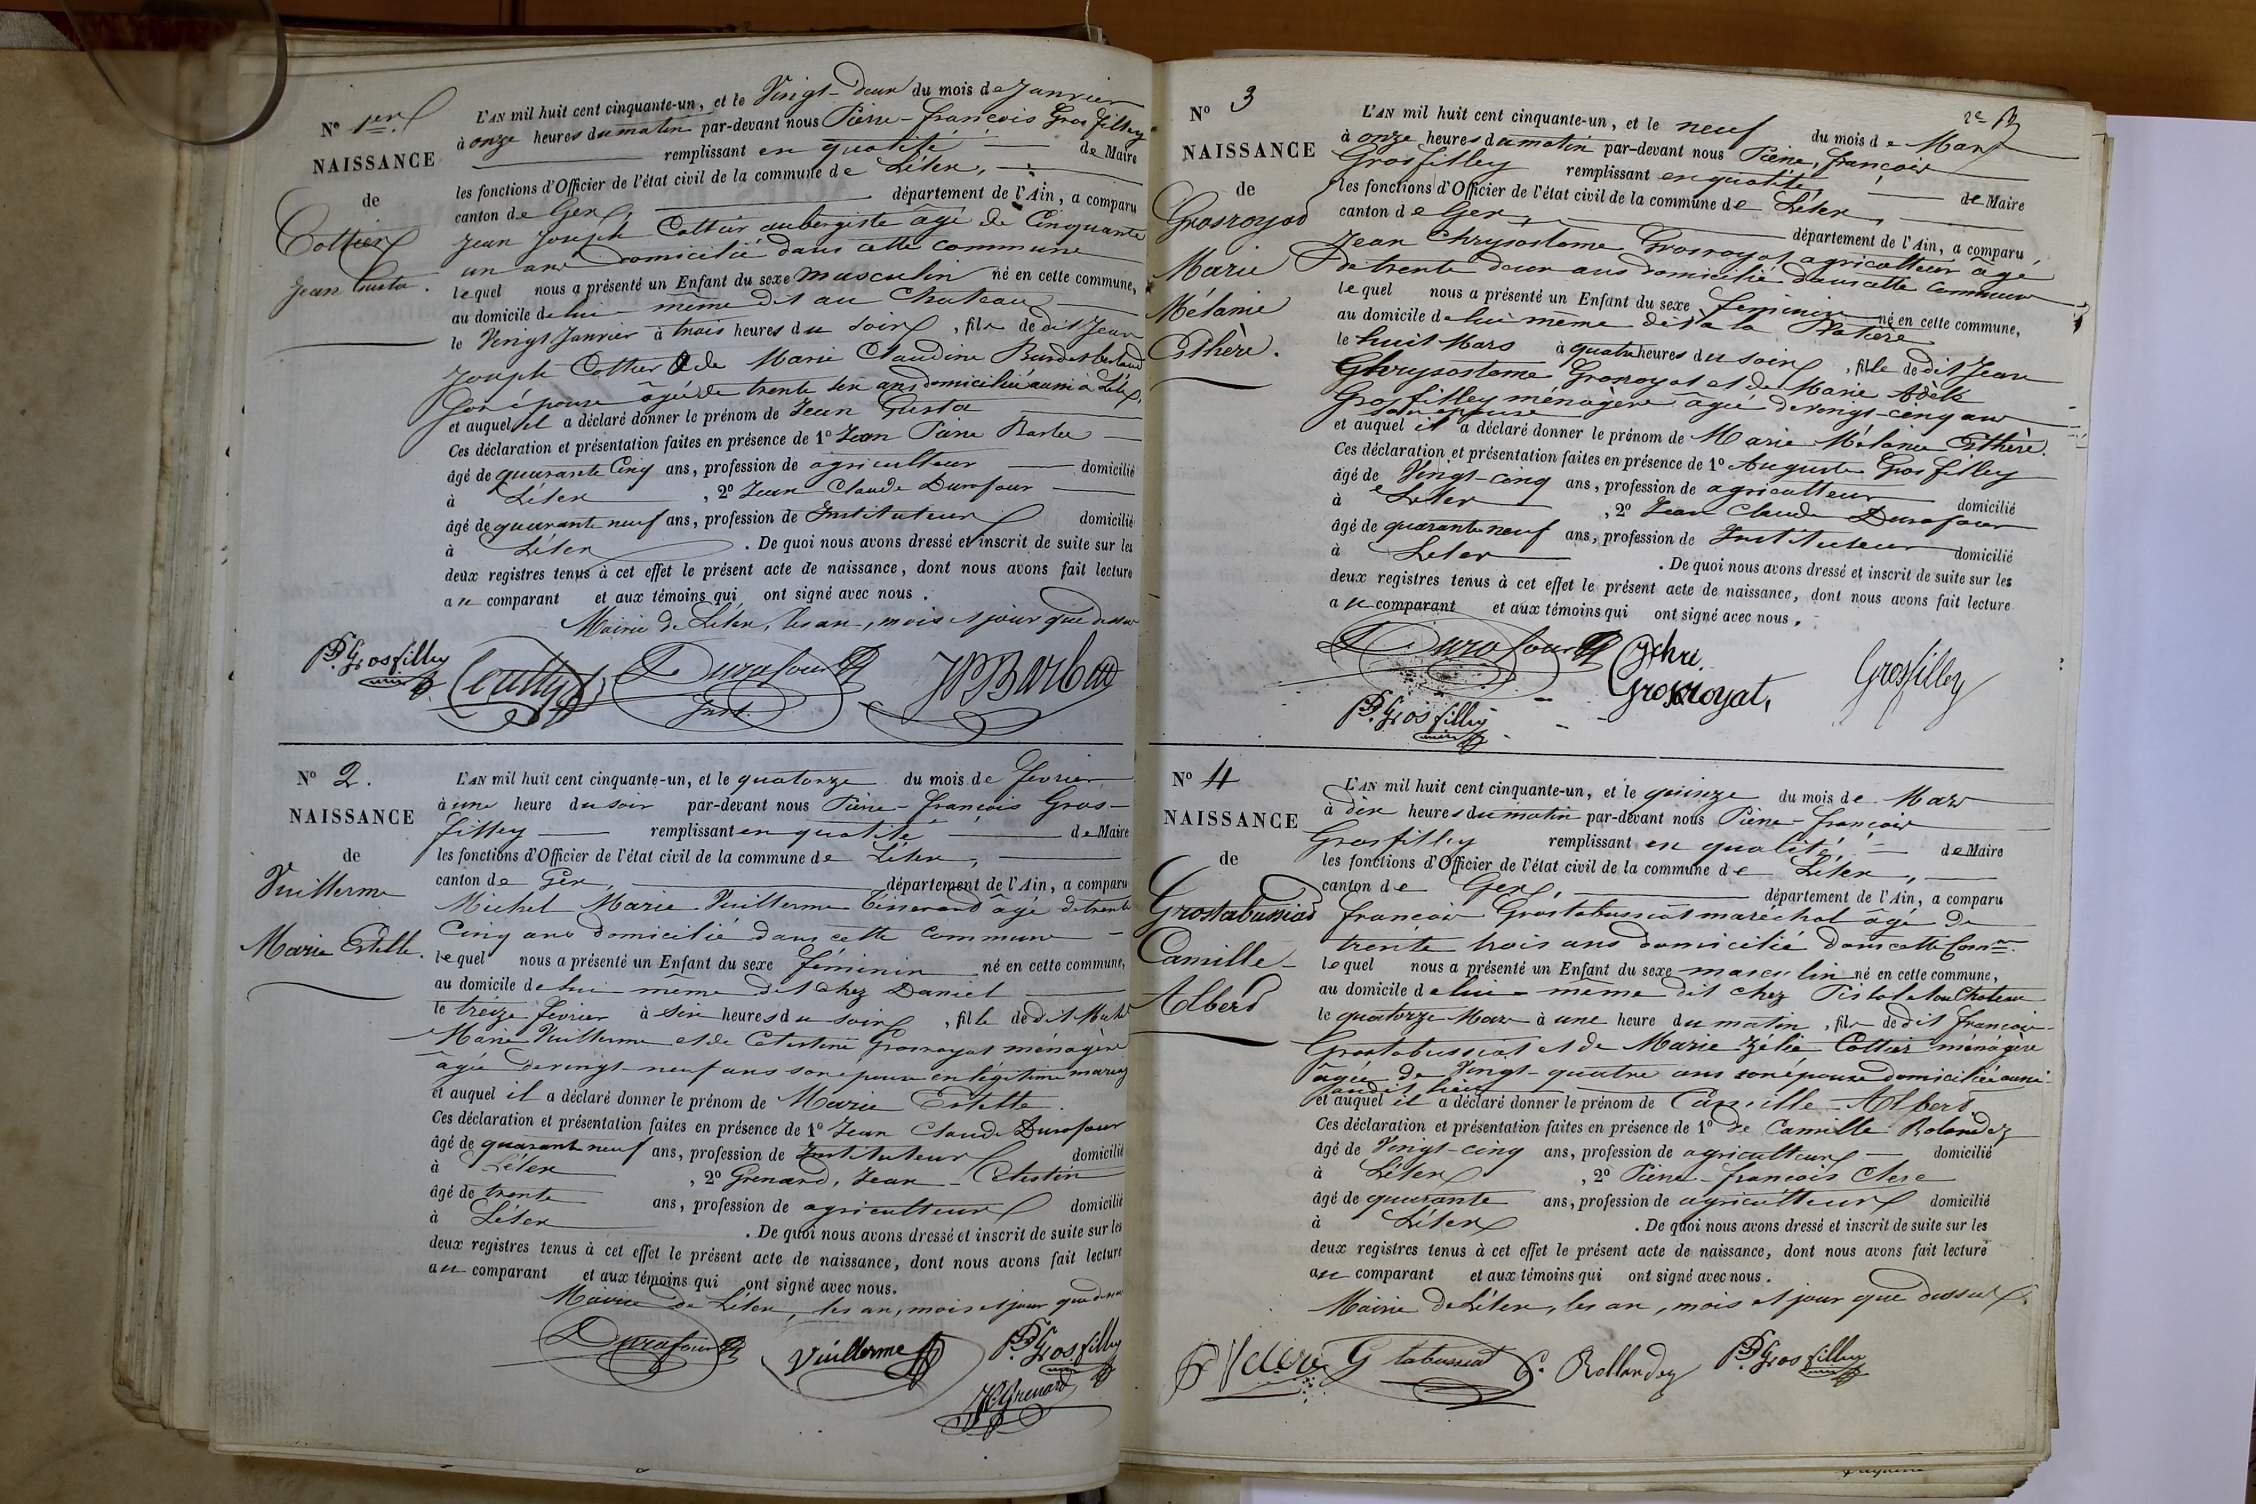 N° 1er.
NAISSANCE
de
Cottier
Jean Gusta.
L'AN mil huit cent cinquante-un, et le Vingt-deux du mois de Janvier
à onze heures du matin par-devant nous Pierre-françois Gros filley
remplissant en qualité de Maire
les fonctions d'Officier de l'état civil de la commune de Lélex,
canton de Gex, département de l'Ain, a comparu
Jean Joseph Cottier aubergiste âgé de Cinquante
un ans domicilié dans cette commune
lequel nous a présenté un Enfant du sexe masculin né en cette commune,
au domicile de lui même dit au Chateau
le Vingt Janvier à trois heures du soir, fils de dit Jean
Joseph Cottier & de Marie Claudine
son épouse âgée de trente six ans domiciliée aussi à Lélex,
et auquel il a déclaré donner le prénom de Jean Gusta
Ces déclaration et présentation faites en présence de 1° Jean Pierre Barbe
âgé de quarante Cinq ans, profession de agriculteur domicilié
à Lélex, 2° Jean Claude Durafour
âgé de quarante neuf ans, profession de Instituteur domicilié
à Lélex. De quoi nous avons dressé et inscrit de suite sur les
deux registres tenus à cet effet le présent acte de naissance, dont nous avons fait lecture
au comparant et aux témoins qui ont signé avec nous.
Mairie de Lélex, les an, mois et jour que dessus
P.F. Grosfilley Durafour JPBarbe
maire Inst.
N° 2.
NAISSANCE
de
Vuillerme
Marie Estelle.
L'AN mil huit cent cinquante-un, et le quatorze du mois de février
à une heure du soir par-devant nous Pierre-françois Gros-
filley remplissant en qualité de Maire
les fonctions d'Officier de l'état civil de la commune de Lélex,
canton de Gex, département de l'Ain, a comparu
Michel Marie Vuillerme Tisserand âgé de trente
Cinq ans domicilié dans cette commune
lequel nous a présenté un Enfant du sexe féminin né en cette commune,
au domicile de lui même dit chez Daniel
le treize février à six heures du soir, fille de dit Michel
Marie Vuillerme et de Celestine Grosroyat ménagère
âgée de vingt-neuf ans son epouse en légitime mariage
et auquel il a déclaré donner le prénom de Marie Estelle.
Ces déclaration et présentation faites en présence de 1° Jean Claude Durafour
âgé de quarante neuf ans, profession de Instituteur domicilié
à Lélex, 2° Grenard, Jean-Celestin
âgé de trente ans, profession de agriculteur domicilié
à Lélex. De quoi nous avons dressé et inscrit de suite sur les
deux registres tenus à cet effet le présent acte de naissance, dont nous avons fait lecture
au comparant et aux témoins qui ont signé avec nous.
Mairie de Lélex, les an, mois et jour que dessus
Durafour Vuillerme P.F. Grosfilley
JCGrenard
2e
N° 3
NAISSANCE
de
Grosroyat
Marie
Mélanie
Esthère.
L'AN mil huit cent cinquante-un, et le neuf du mois de Mars
à onze heures du matin par-devant nous Pierre, françois
Grosfilley remplissant en qualité, de Maire
les fonctions d'Officier de l'état civil de la commune de Lélex,
canton de Gex, département de l'Ain, a comparu
Jean Chrysostome Grosroyat agriculteur âgé
de trente deux ans domicilié dans cette commune
lequel nous a présenté un Enfant du sexe féminin né en cette commune,
au domicile de lui même dit à la Platière
le huit Mars à quatre heures du soir, fille de dit Jean
Chrysostome Grosroyat et de Marie Adèle
Grosfilley ménagère âgée de vingt-cinq ans
son épouse
et auquel il a déclaré donner le prénom de Marie Mélanie Esthère.
Ces déclaration et présentation faites en présence de 1° Auguste Gros filley
âgé de Vingt-cinq ans, profession de agriculteur domicilié
à Lélex, 2° Jean Claude Durafour
âgé de quarante neuf ans, profession de Instituteur domicilié
à Lelex. De quoi nous avons dressé et inscrit de suite sur les
deux registres tenus à cet effet le présent acte de naissance, dont nous avons fait lecture
au comparant et aux témoins qui ont signé avec nous.
Durafour Jchri. Grosfilley
Grosroyat,
P.F. Grosfilley
maire
N° 4
NAISSANCE
de
Grostabussiat
Camille
Albert
L'AN mil huit cent cinquante-un, et le quinze du mois de Mars
à dix heures du matin par-devant nous Pierre-françois
Grosfilley remplissant en qualité, de Maire
les fonctions d'Officier de l'état civil de la commune de Lélex,
canton de Gex, département de l'Ain, a comparu
françois Grostabussiat maréchal âgé de
trente trois ans domicilié dans cette Comne.
lequel nous a présenté un Enfant du sexe masculin né en cette commune,
au domicile de lui-même dit chez Pistolet au Chateau
le quatorze Mars à une heure du matin, fils de dit françois
Grostabussiat et de Marie Zélie Cottier ménagère
âgée de Vingt-quatre ans son épouse domiciliée aussi
audit lieu
et auquel il a déclaré donner le prénom de Camille-Albert.
Ces déclaration et présentation faites en présence de 1° de Camille Rolandez
âgé de Vingt-cinq ans, profession de agriculteur domicilié
à Lélex, 2° Pierre-françois Clerc
âgé de quarante ans, profession de agriculteur domicilié
à Lélex. De quoi nous avons dressé et inscrit de suite sur les
deux registres tenus à cet effet le présent acte de naissance, dont nous avons fait lecture
au comparant et aux témoins qui ont signé avec nous.
Mairie de Lélex, les an, mois et jour que dessus.
G tabussiat C. Rollandez P.F. Grosfilley